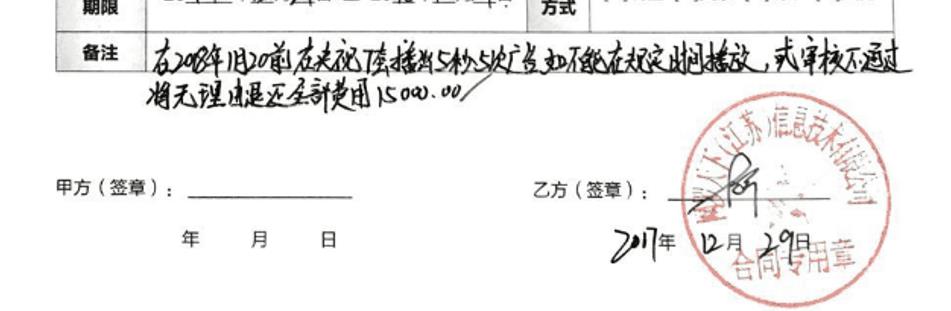 期限
方式
备注
在2018年1月20前在央视下套播出5秒.5次广告如不能在规定时间播放,或审核不通过
将无理由退还全部费用15000.00
甲方(签章):
乙方(签章):
年 月 日
2017年 12月 29日
天下(江苏)信息技术有限公司
合同专用章